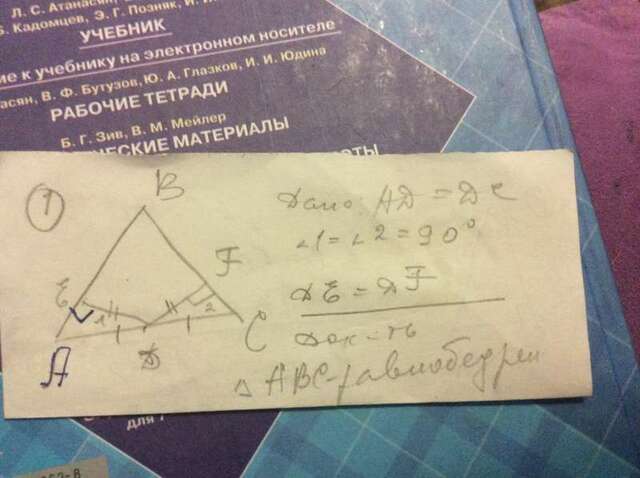 Л. С. Атанасян,
Б. Кадомцев, Э. Г. Позняк, И. И.
УЧЕБНИК
ие к учебнику на электронном носителе
асян, В. Ф. Бутузов, Ю. А. Глазков, И. И. Юдина
РАБОЧИЕ ТЕТРАДИ
Б. Г. Зив, В. М. Мейлер
ЧЕСКИЕ МАТЕРИАЛЫ
1
B
E
F
1
2
A
D
C
Дано AD = DC
∠1 = ∠2 = 90°
DE = DF
Док-ть
△ABC-равнобедрен
для 7